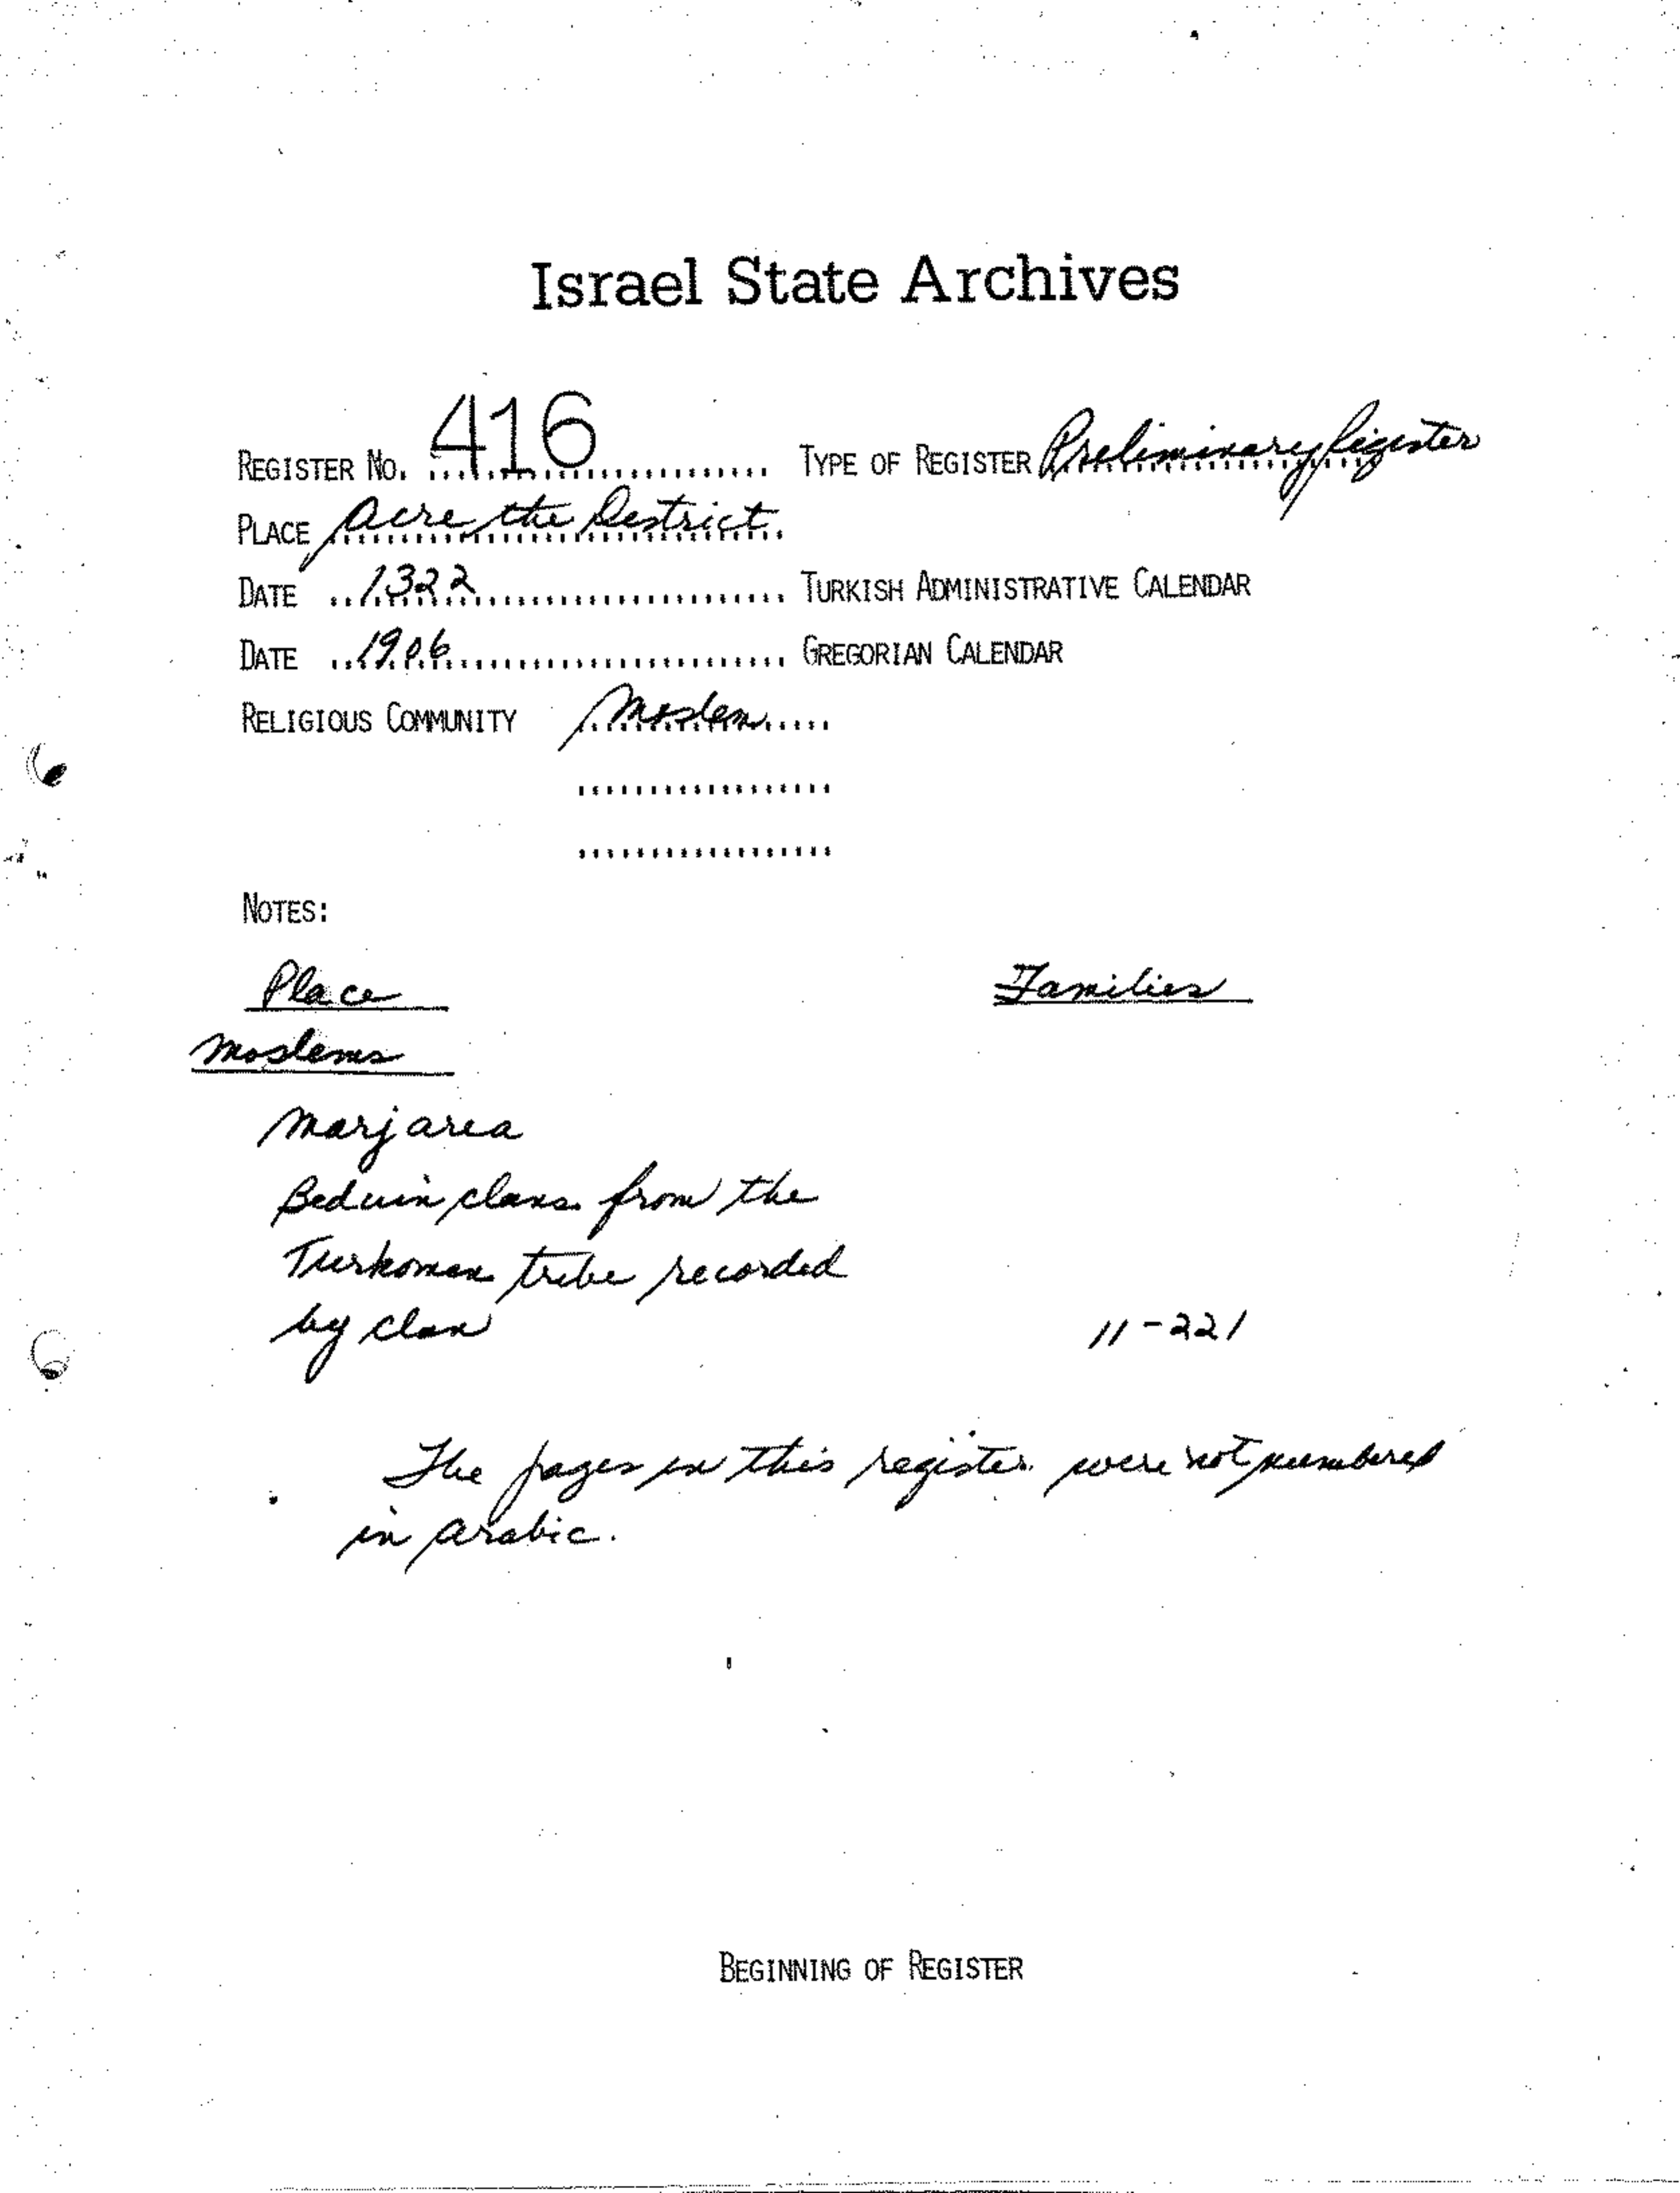 Israel State Archives
REGISTER NO. 416 TYPE OF REGISTER Preliminary Register
PLACE Acre the District
DATE 1322 TURKISH ADMINISTRATIVE CALENDAR
DATE 1906 GREGORIAN CALENDAR
RELIGIOUS COMMUNITY Moslem
NOTES:
Place Families
Moslems
Marj area
Beduin clans from the
Turkoman tribe recorded
by clan 11-221
The pages in this register were not numbered
in Arabic.
BEGINNING OF REGISTER